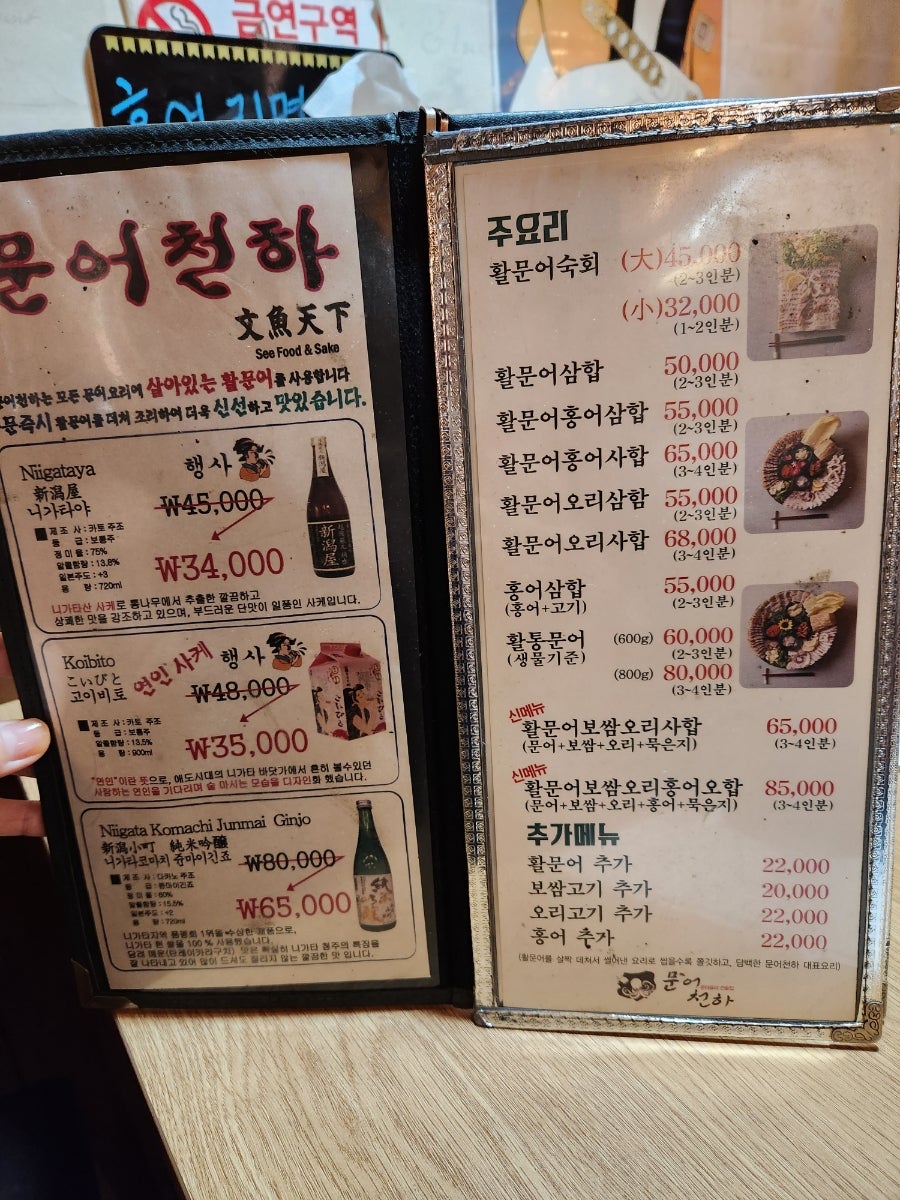 금연구역
문어천하
文魚天下
See Food & Sake
문어천하는 모든 문어요리에 살아있는 활문어를 사용합니다
주문즉시 활문어를 데쳐 조리하여 더욱 신선하고 맛있습니다.
Niigataya
新潟屋
니가타야
행사
₩45,000
₩34,000
■ 제 조 사 : 카토 주조
등 급 : 보통주
정 미 율 : 75%
알콜함량 : 13.8%
일본주도 : +3
용 량 : 720ml
新潟屋
니가타산 사케로 통나무에서 추출한 깔끔하고
상쾌한 맛을 강조하고 있으며, 부드러운 단맛이 일품인 사케입니다.
Koibito
こいびと
고이비토
연인 사케
행사
₩48,000
₩35,000
■ 제 조 사 : 카토 주조
등 급 : 보통주
알콜함량 : 13.5%
용 량 : 900ml
こいびと
"연인"이란 뜻으로, 에도시대의 니가타 바닷가에서 흔히 볼수있던
사랑하는 연인을 기다리며 술 마시는 모습을 디자인화 했습니다.
Niigata Komachi Junmai Ginjo
新潟小町 純米吟醸
니가타코마치 쥰마이긴죠
₩80,000
₩65,000
■ 제 조 사 : 다카노 주조
등 급 : 쥰마이긴죠
정 미 율 : 60%
알콜함량 : 15.5%
일본주도 : +2
용 량 : 720ml
니가타지역 품평회 1위를 수상한 제품으로,
니가타 현 쌀을 100 % 사용했습니다.
담려 매운(탄레이카라구치) 맛은 확실히 니가타 청주의 특징을
잘 나타내고 있어 많이 드셔도 질리지 않는 깔끔한 맛 입니다.
주요리
활문어숙회 (大)45,000
(2~3인분)
(小)32,000
(1~2인분)
활문어삼합 50,000
(2~3인분)
활문어홍어삼합 55,000
(2~3인분)
활문어홍어사합 65,000
(3~4인분)
활문어오리삼함 55,000
(2~3인분)
활문어오리사합 68,000
(3~4인분)
홍어삼합 55,000
(홍어+고기) (2~3인분)
활통문어 (600g) 60,000
(생물기준) (2~3인분)
(800g) 80,000
(3~4인분)
신메뉴
활문어보쌈오리사합 65,000
(문어+보쌈+오리+묵은지) (3~4인분)
신메뉴
활문어보쌈오리홍어오합 85,000
(문어+보쌈+오리+홍어+묵은지) (3~4인분)
추가메뉴
활문어 추가 22,000
보쌈고기 추가 20,000
오리고기 추가 22,000
홍어 추가 22,000
(활문어를 살짝 데쳐서 썰어낸 요리로 씹을수록 쫄깃하고, 담백한 문어천하 대표요리)
문어
천하